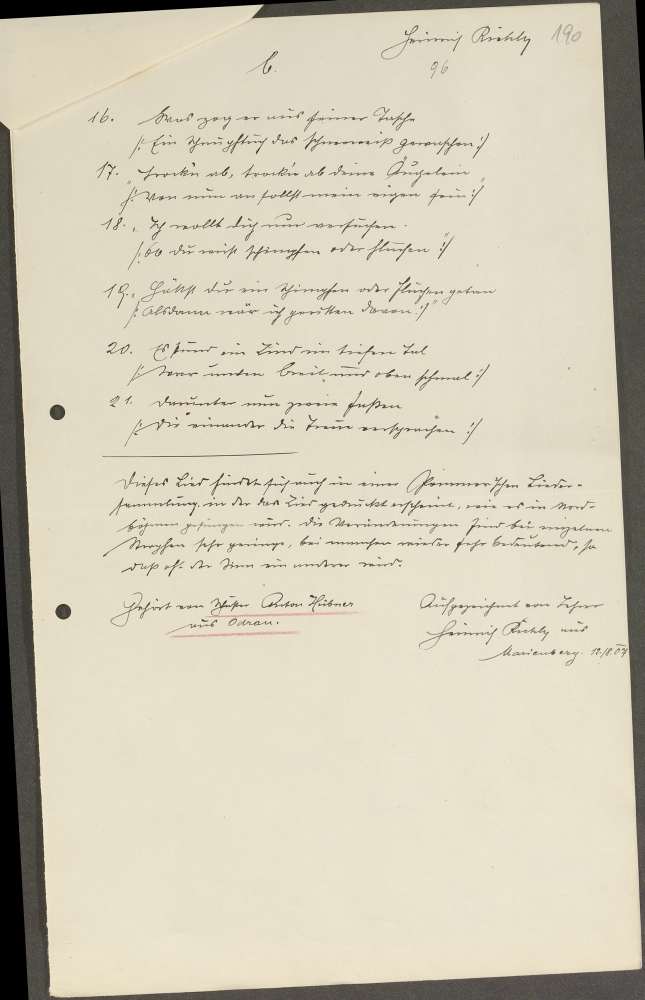 Heinrich Richly 190
b. 96
16. Was zog er aus seiner Tasche
/: Ein Schnupftuch das schneeweiß gewaschen :/
17. „Trockn ab, trockn ab deine Äugelein
/: Von nun an sollst mein eigen sein :/“
18. „Ich wollt dich nur versuchen
/: Ob du nicht schimpfen oder fluchen :/“
19. „Hättst du ein Schimpfen oder Fluchen getan
/: Alsdann wär ich geritten davon :/“
20. Es stund ein Lind im tiefen Tal
/: War unten breit und oben schmal :/
21. Darunter nun zweie saßen
/: Die einander die Treue versprachen :/
Dieses Lied findet sich auch in einer Pommer'schen Lieder-
sammlung, in der das Lied gedruckt erscheint, wie es in Nord-
böhmen gesungen wird. Die Veränderungen sind bei einzelnen
Strophen sehr geringe, bei manchen wieder sehr bedeutend, so
daß oft der Sinn ein anderer wird.
Gehört von Anton Hübner
aus Odrau.
Aufgezeichnet von Lehrer
Heinrich Richly aus
Marienberg. 12/8.07